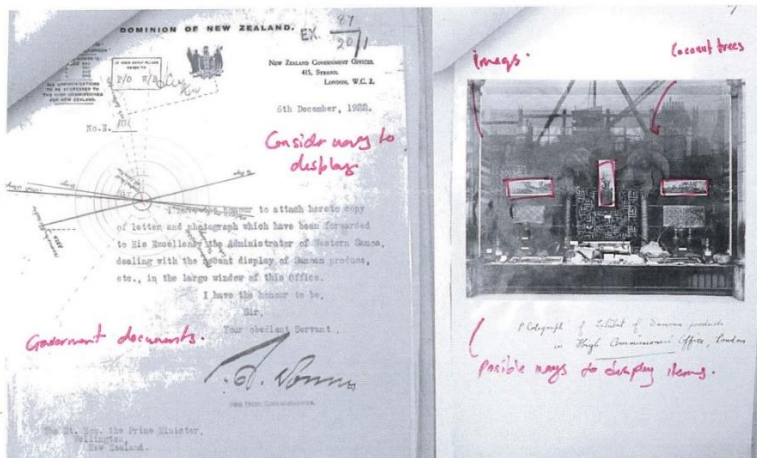 DOMINION OF NEW ZEALAND.
EX. 87
20/1
NEW ZEALAND GOVERNMENT OFFICES,
415, STRAND,
LONDON, W.C. 2.
ALL COMMUNICATIONS
TO BE ADDRESSED TO
THE HIGH COMMISSIONER
FOR NEW ZEALAND.
6th December, 1922.
Consider ways to
display
I have the honour to attach hereto copy
of letter and photograph which have been forwarded
to His Excellency the Administrator of Western Samoa,
dealing with the recent display of Samoan produce,
etc., in the large window of this Office.
I have the honour to be,
Sir,
Your obedient Servant,
Goverment documents.
HIGH COMMISSIONER.
The Rt. Hon. the Prime Minister,
Wellington,
New Zealand.
images.
Coconut trees
Photograph of Exhibit of Samoan products
in High Commissioner's Office, London
Posible ways to display items.